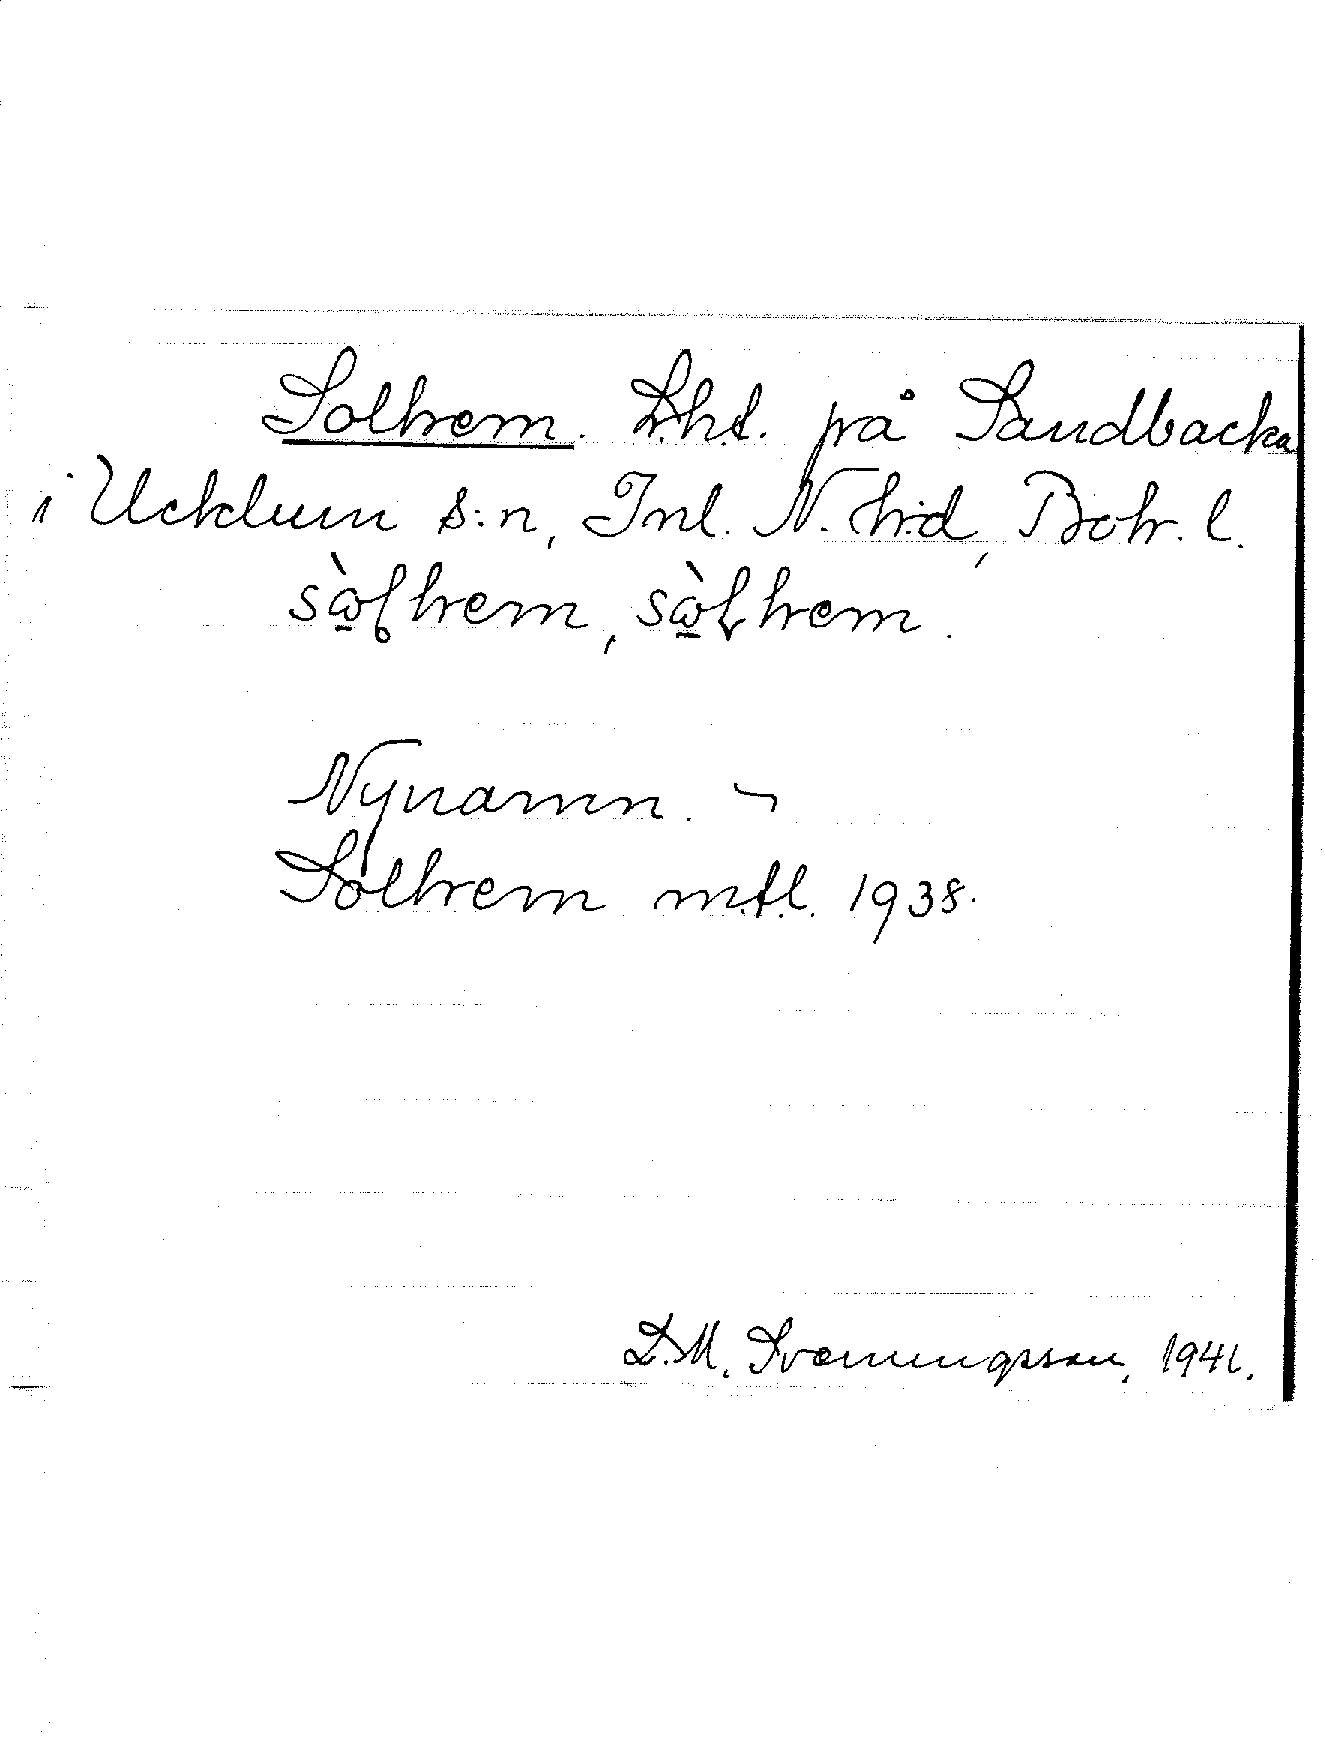 Solhem. Lht. på Sandbacka
i Ucklum s:n, Inl. N. hd, Boh. l.
Nynamn. ¬
Solhem mtl. 1938.
D.M. Svenningsson, 1941.